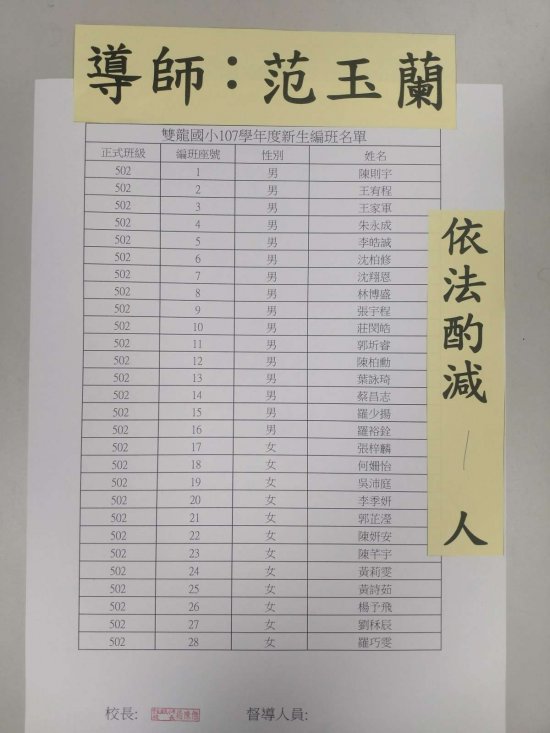 導師：范玉蘭
雙龍國小107學年度新生編班名單
正式班級 編班座號 性別 姓名
502 1 男 陳則宇
502 2 男 王宥程
502 3 男 王家軍
502 4 男 朱永成
502 5 男 李皓誠
502 6 男 沈柏修
502 7 男 沈翔恩
502 8 男 林博盛
502 9 男 張宇程
502 10 男 莊閔皓
502 11 男 郭圻睿
502 12 男 陳柏勳
502 13 男 葉詠琦
502 14 男 蔡昌志
502 15 男 羅少揚
502 16 男 羅裕銓
502 17 女 張梓麟
502 18 女 何姍怡
502 19 女 吳沛庭
502 20 女 李季妍
502 21 女 郭芷瀅
502 22 女 陳妍安
502 23 女 陳芊宇
502 24 女 黃莉雯
502 25 女 黃詩茹
502 26 女 楊予飛
502 27 女 劉秝辰
502 28 女 羅巧雯
依法酌減 1 人
校長: 督導人員: